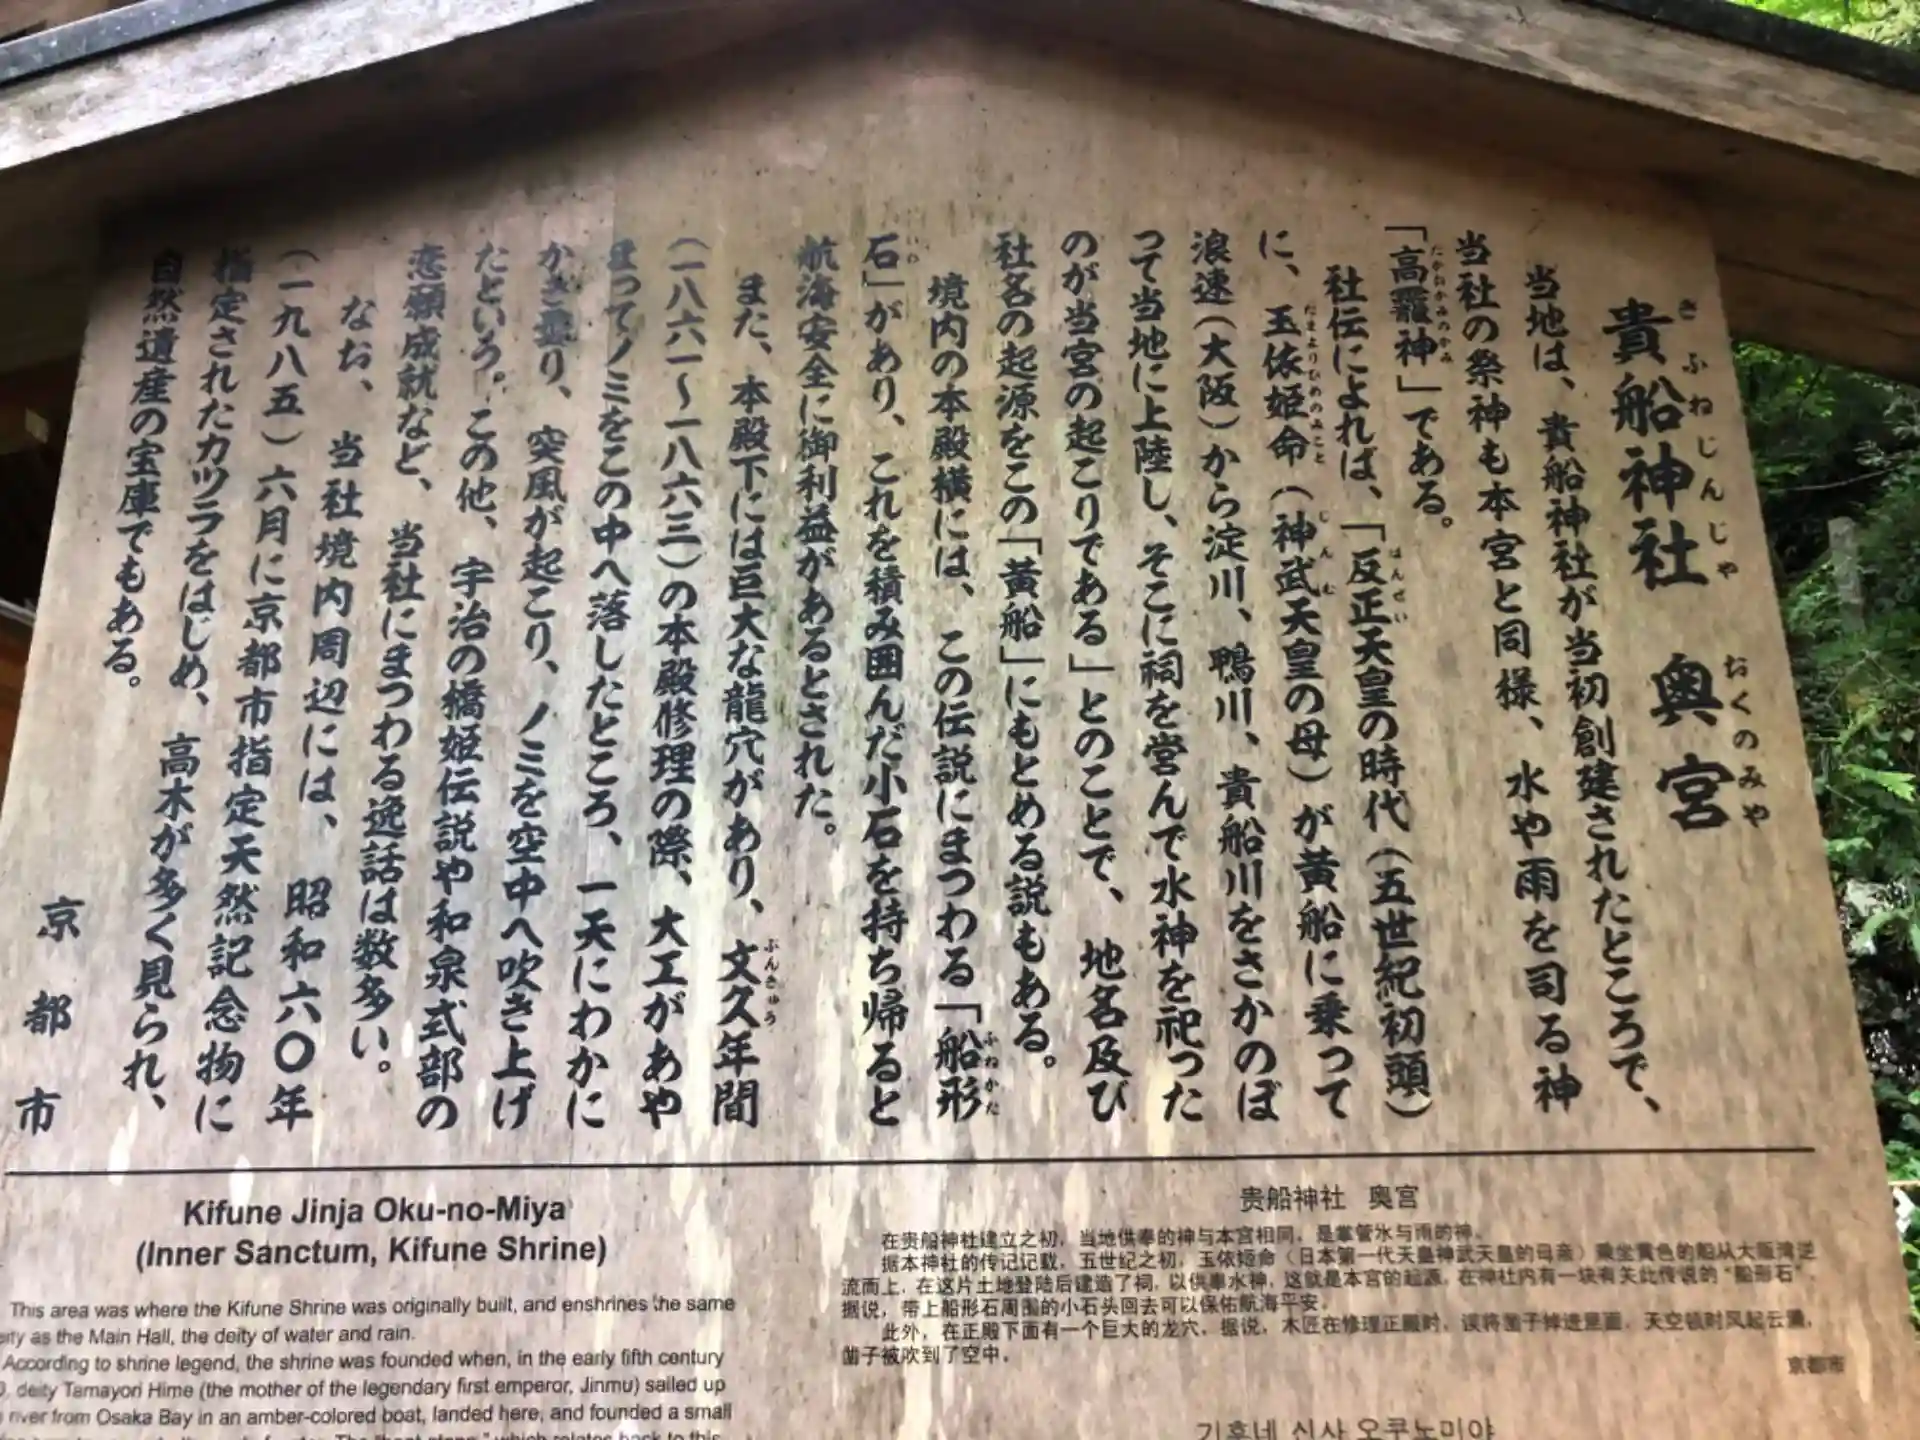 貴船神社 奥宮
きふねじんじゃ おくのみや
当地は、貴船神社が当初創建されたところで、
当社の祭神も本宮と同様、水や雨を司る神
「高龗神」である。
たかおかみのかみ
社伝によれば、「反正天皇の時代(五世紀初頭)
はんぜい
に、玉依姫命(神武天皇の母)が黄船に乗って
たまよりひめのみこと じんむ
浪速(大阪)から淀川、鴨川、貴船川をさかのぼ
って当地に上陸し、そこに祠を営んで水神を祀った
のが当宮の起こりである」とのことで、地名及び
社名の起源をこの「黄船」にもとめる説もある。
境内の本殿横には、この伝説にまつわる「船形
ふねかた
石」があり、これを積み囲んだ小石を持ち帰ると
いわ
航海安全に御利益があるとされた。
また、本殿下には巨大な龍穴があり、文久年間
ぶんきゅう
(一八六一〜一八六三)の本殿修理の際、大工があや
まってノミをこの中へ落したところ、一天にわかに
かき曇り、突風が起こり、ノミを空中へ吹き上げ
たという。この他、宇治の橋姫伝説や和泉式部の
恋願成就など、当社にまつわる逸話は数多い。
なお、当社境内周辺には、昭和六〇年
(一九八五)六月に京都市指定天然記念物に
指定されたカツラをはじめ、高木が多く見られ、
自然遺産の宝庫でもある。
京都市
Kifune Jinja Oku-no-Miya
(Inner Sanctum, Kifune Shrine)
This area was where the Kifune Shrine was originally built, and enshrines the same
as the Main Hall, the deity of water and rain.
According to shrine legend, the shrine was founded when, in the early fifth century
deity Tamayori Hime (the mother of the legendary first emperor, Jinmu) sailed up
river from Osaka Bay in an amber-colored boat, landed here, and founded a small
贵船神社 奥宫
在贵船神社建立之初，当地供奉的神与本宫相同，是掌管水与雨的神。
据本神社的传记记载，五世纪之初，玉依姬命（日本第一代天皇神武天皇的母亲）乘坐黄色的船从大阪湾逆
流而上，在这片土地登陆后建造了祠，以供奉水神，这就是本宫的起源。在神社内有一块有关此传说的“船形石”，
据说，带上船形石周围的小石头回去可以保佑航海平安。
此外，在正殿下面有一个巨大的龙穴，据说，木匠在修理正殿时，误将凿子掉进里面，天空顿时风起云涌，
凿子被吹到了空中。
京都市
기후네 신사 오쿠노미야